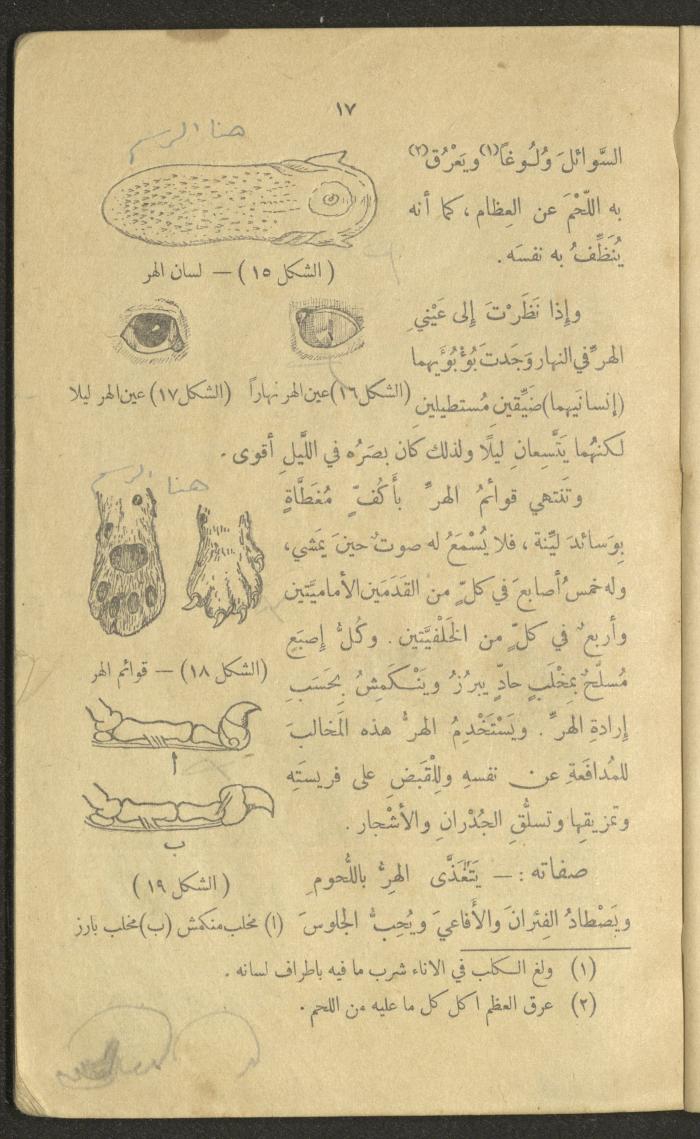 ١٧
هنا الرسم
السَّوائلَ وُلُوغاً(١) ويَعْرُق(٢)
به اللّحْمَ عن العِظام، كما أنه
يُنَظِّفُ به نفسَه.
(الشكل ١٥) — لسان الهر
وإِذا نَظَرْتَ إِلى عَيْنيِ
الهرّ في النهار وَجَدتَ بُؤْبُؤَيهما
(إنسانَيهما) ضَيِّقَينِ مُستطيلينِ
(الشكل ١٦) عين الهر نهاراً
(الشكل ١٧) عين الهر ليلا
لكنهُما يَتَّسِعانِ ليلًا ولذلك كان بصَرُه في اللَّيلِ أقوى.
هنا الرسم
وتَنتهي قوائمُ الهرِّ بأَكُفٍّ مُغَطَّاةٍ
بِوَسائدَ ليِّنة، فلا يُسْمَعُ له صوتٌ حينَ يَمشي،
وله خمسُ أصابعَ في كلّ من القَدَمَين الأماميَّتين
وأربعٌ في كلّ من الخَلفيَّتين. وكُلُّ إصبَعٍ
(الشكل ١٨) — قوائم الهر
مُسلّحٌ بمِخْلَبٍ حادٍّ يبرُزُ ويَنْكَمِشُ بِحَسَبِ
إرادةِ الهرِّ. ويَسْتَخْدِمُ الهرُّ هذه المَخالبَ
أ
للمُدافَعةِ عن نفسهِ وللْقَبضِ على فريستِه
وتمزيقِها وتسلُّقِ الجُدْرانِ والأشْجار.
ب
صفاته: — يَتَغَذَّى الهرُّ باللُّحومِ
(الشكل ١٩)
ويَصْطادُ الفِئرانَ والأَفاعيَ ويُحِبُّ الجلوسَ
(ا) مخلب منكمش (ب) مخلب بارز
(١) ولغ الكلب في الاناء شرب ما فيه باطراف لسانه.
(٢) عرق العظم اكل كل ما عليه من اللحم.